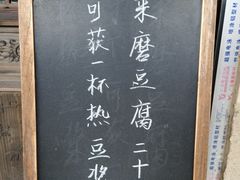 米磨豆腐二十
可获一杯热豆浆